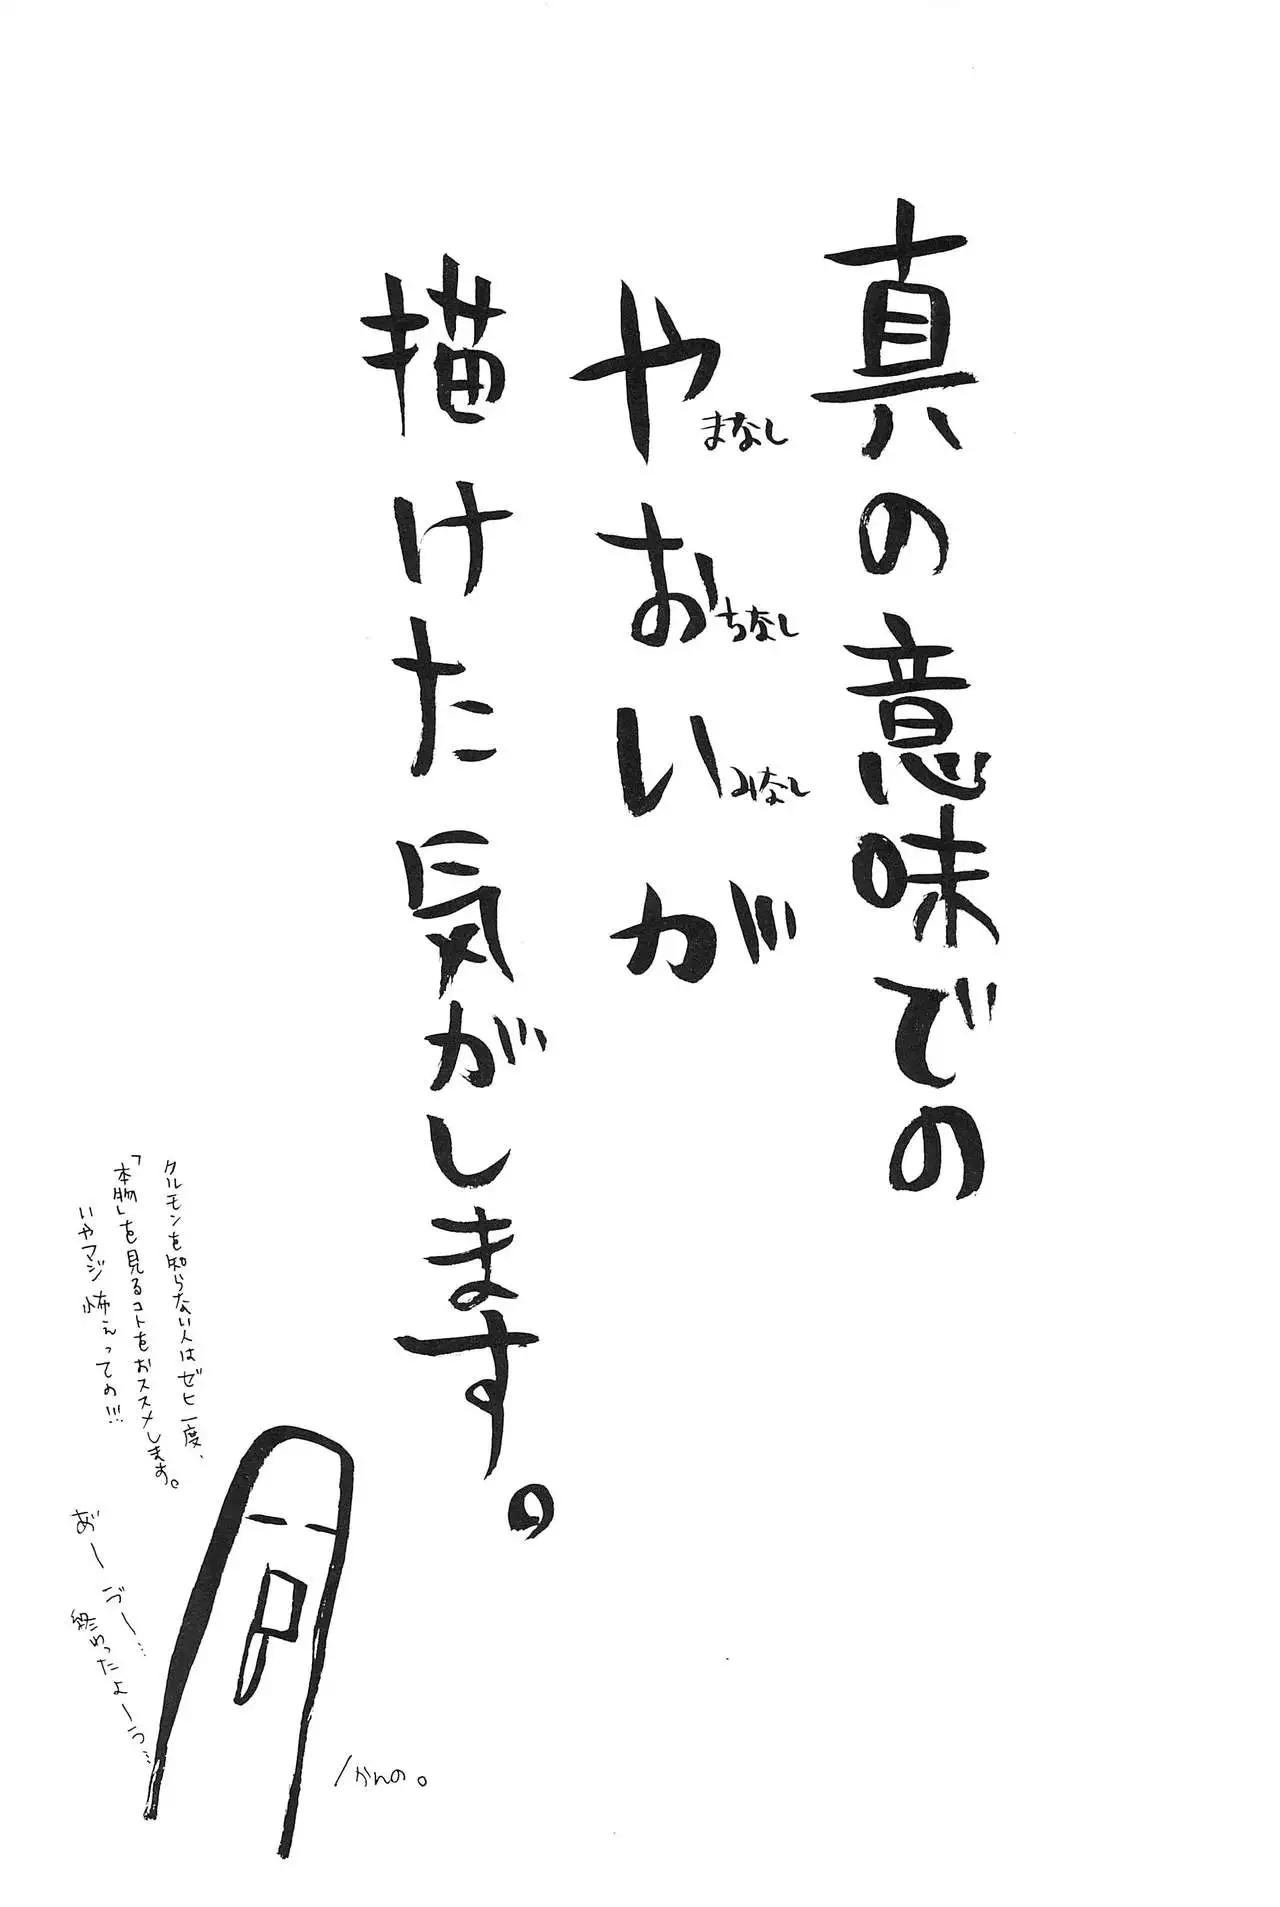 真の意味での
やまなし
おちなし
いみなし
が
描けた気がします。
クルモンを知らない人はゼヒ一度、
「本物」を見るコトをおススメします。
いやマジ怖えっての!!!
あ゛ー ゔー…
終わったよーう…
/かんの。